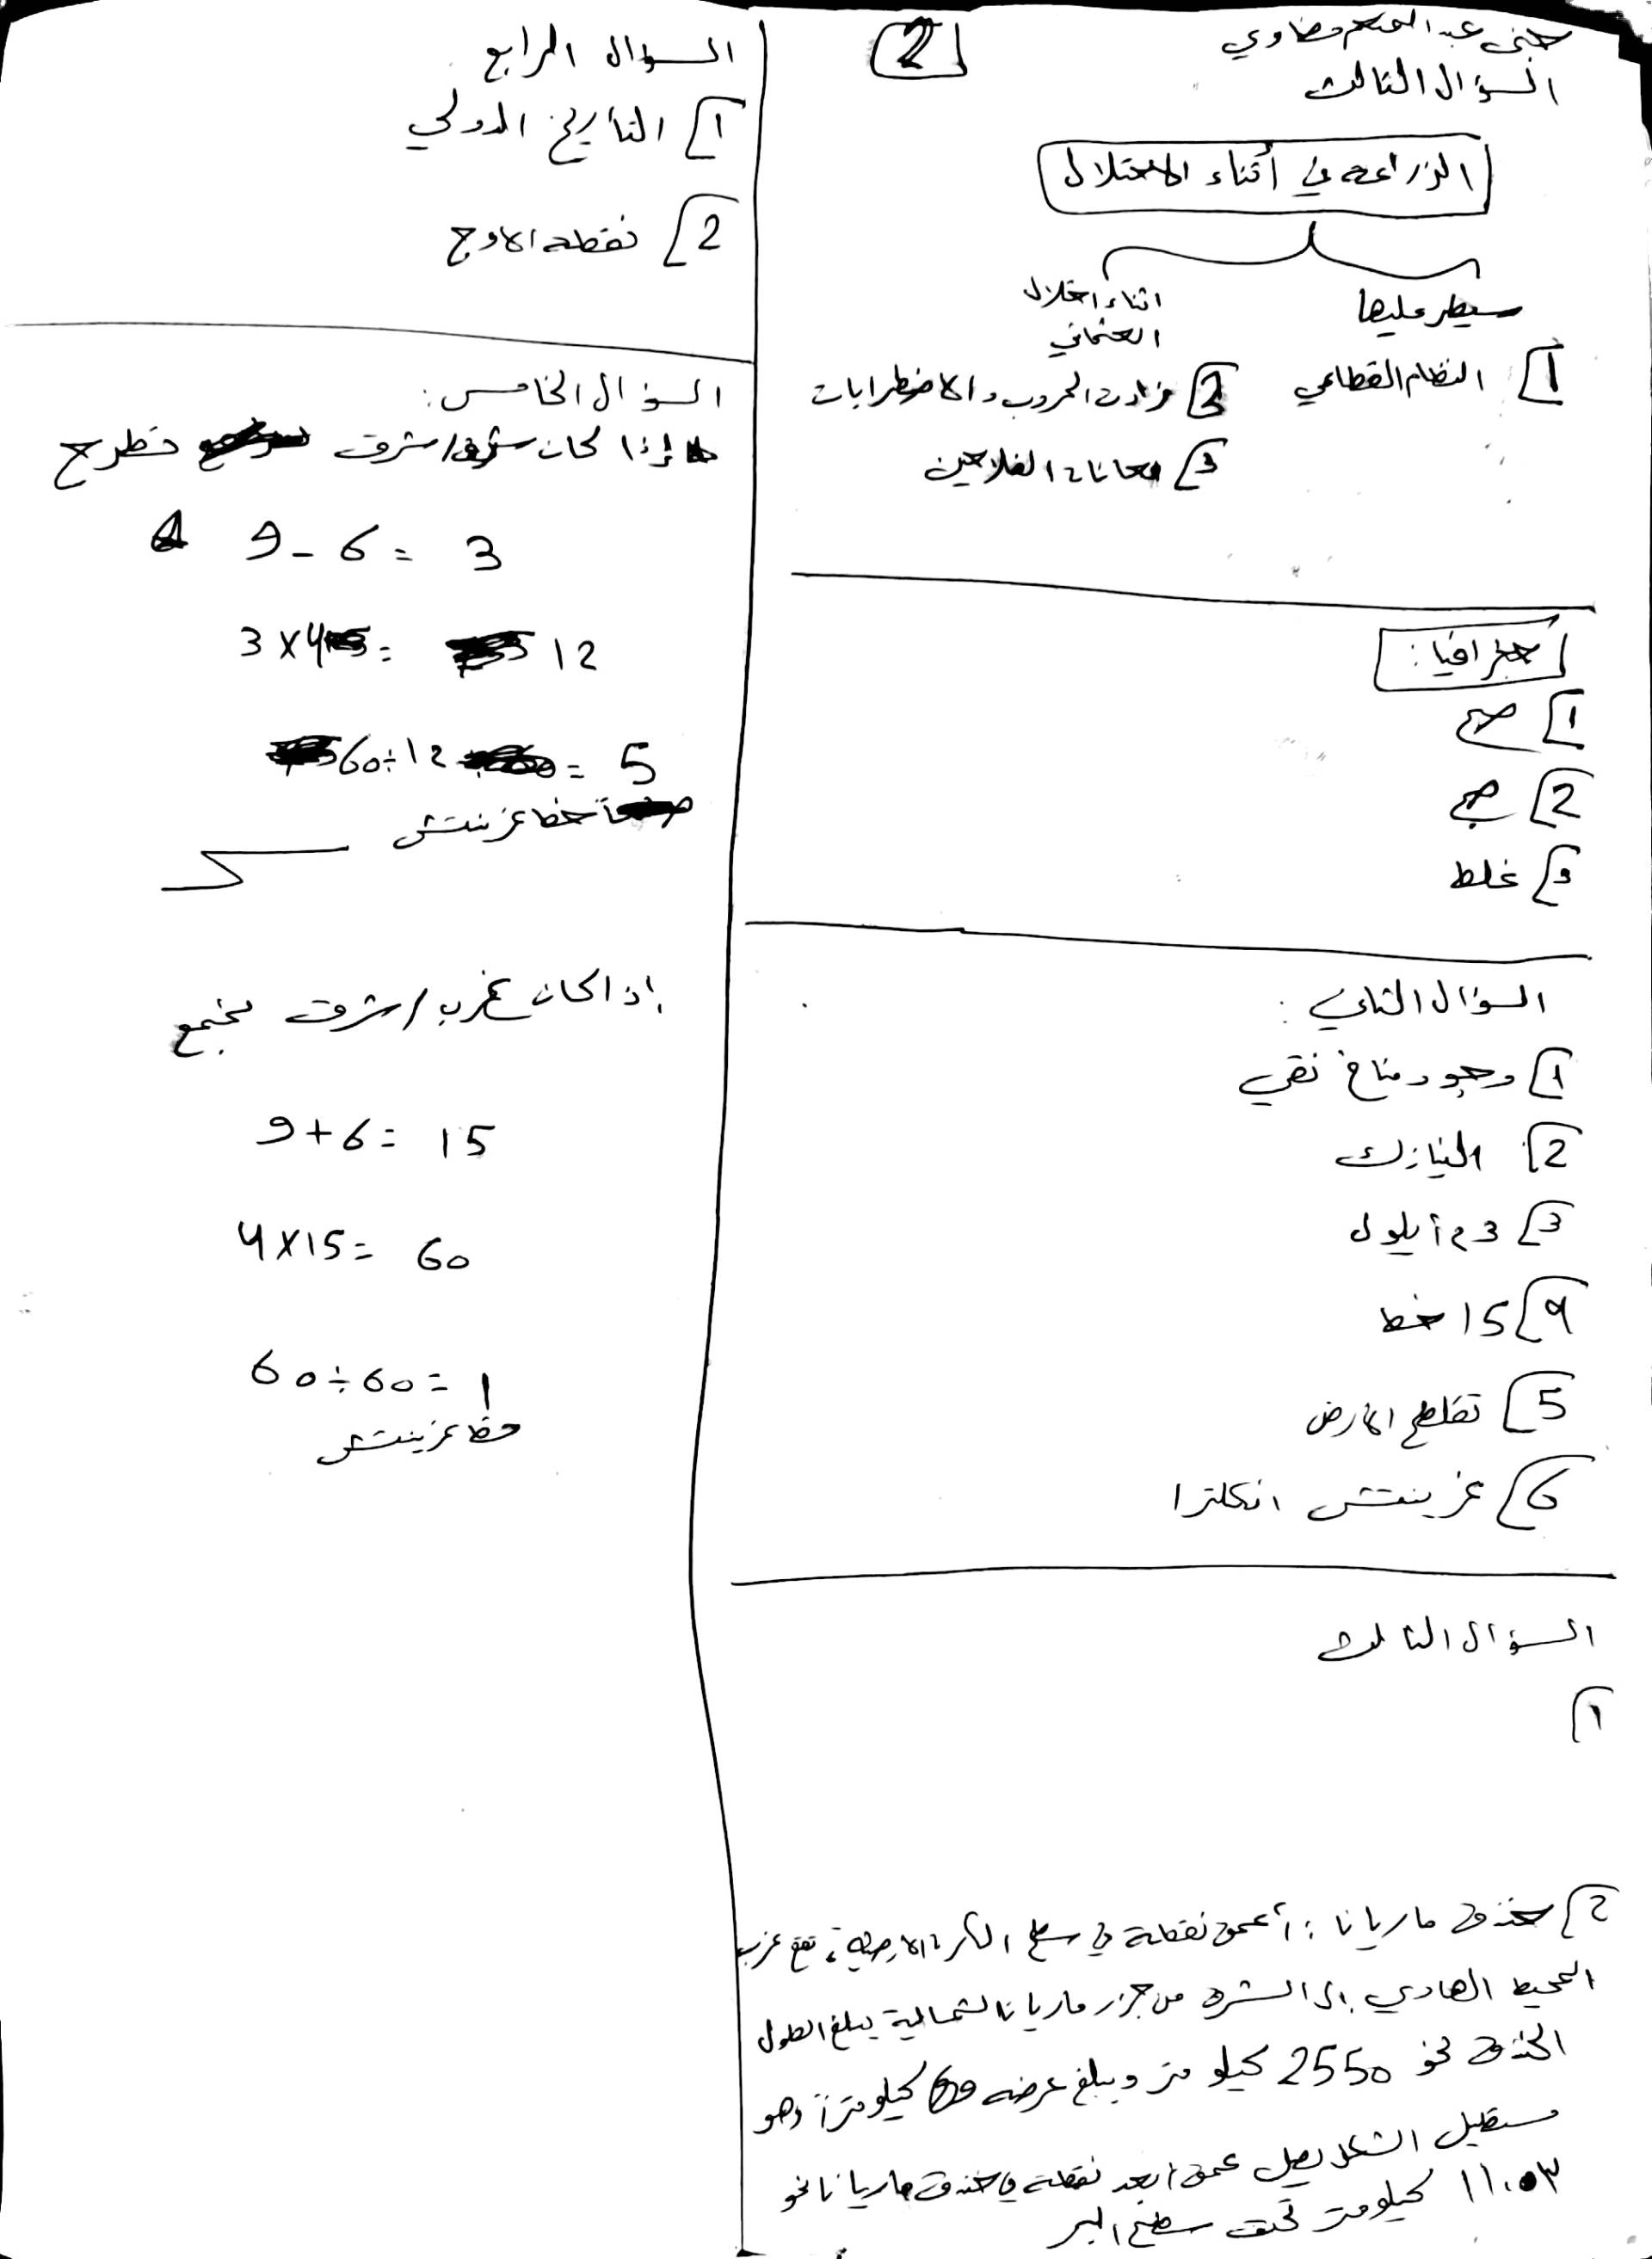 2
جنى عبد المنعم مضاوي
السؤال الثالث
الزراعة في أثناء الاحتلال
سيطر عليها
اثناء احتلال
العثماني
1 النظام القطاعي
2 زادت الحروب والاضطرابات
3 معاناة الفلاحين
جغرافيا:
1 صح
2 صح
3 غلط
السؤال الثاني:
1 وجود مناخ نقي
2 النيازك
3 23 أيلول
4 15 خط
5 تفلطح الارض
6 غرينتش انكلترا
السؤال الثالث
1
2 خندق ماريانا: أعمق نقطة في سطح الكرة الارضية، تقع غرب
المحيط الهادي إلى الشرق من جزر ماريانا الشمالية يبلغ الطول
الخندق نحو 2550 كيلو متر ويبلغ عرضه 69 كيلومتراً وهو
مستطيل الشكل يصل عمق ابعد نقطة في خندق ماريانا نحو
١١.٠٣ كيلومتر تحت سطح البحر
السؤال الرابع
1 التأريخ الدولي
2 نقطة الاوج
السؤال الخامس:
إذا كان شرق/شرق نطرح
9 - 6 = 3
3 x 4 = 12
60 ÷ 12 = 5
خط غرينتش
إذا كان غرب/شرق نجمع
9 + 6 = 15
4 x 15 = 60
60 ÷ 60 = 1
خط غرينتش